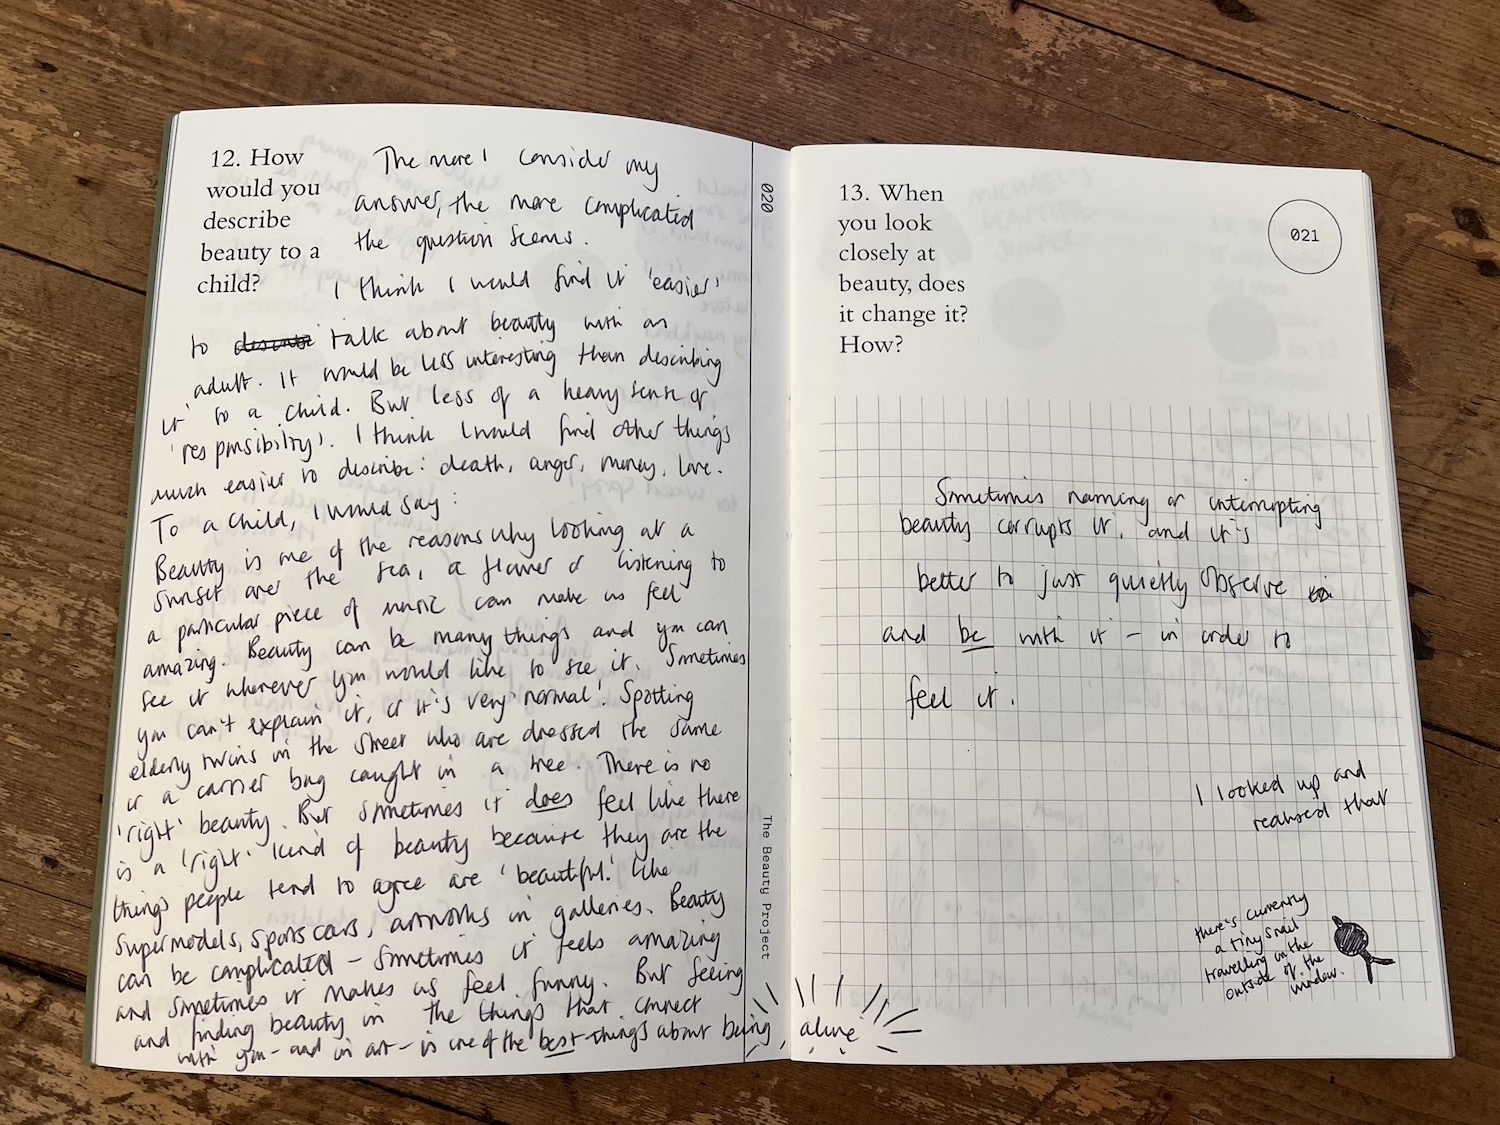 12. How
would you
describe
beauty to a
child?
The more I consider my
answer, the more complicated
the question seems.
I think I would find it 'easier'
to describe talk about beauty with an
adult. It would be less interesting than describing
it to a child. But less of a heavy sense of
'responsibility'. I think I would find other things
much easier to describe: death, anger, money, love.
To a child, I would say:
Beauty is one of the reasons why looking at a
sunset over the sea, a flower or listening to
a particular piece of music can make us feel
amazing. Beauty can be many things and you can
see it wherever you would like to see it. Sometimes
you can't explain it, or it's very 'normal'. Spotting
elderly twins in the street who are dressed the same
or a carrier bag caught in a tree. There is no
'right' beauty. But sometimes it does feel like there
is a 'right' kind of beauty because they are the
things people tend to agree are 'beautiful.' Like
supermodels, sports cars, artworks in galleries. Beauty
can be complicated – sometimes it feels amazing
and sometimes it makes us feel funny. But seeing
and finding beauty in the things that connect
with you – and in art – is one of the best things about being alive
020
The Beauty Project
13. When
you look
closely at
beauty, does
it change it?
How?
021
Sometimes naming or interrupting
beauty corrupts it, and it's
better to just quietly observe
and be with it – in order to
feel it.
I looked up and
realised that
there's currently
a tiny snail
travelling on the
outside of the
window.